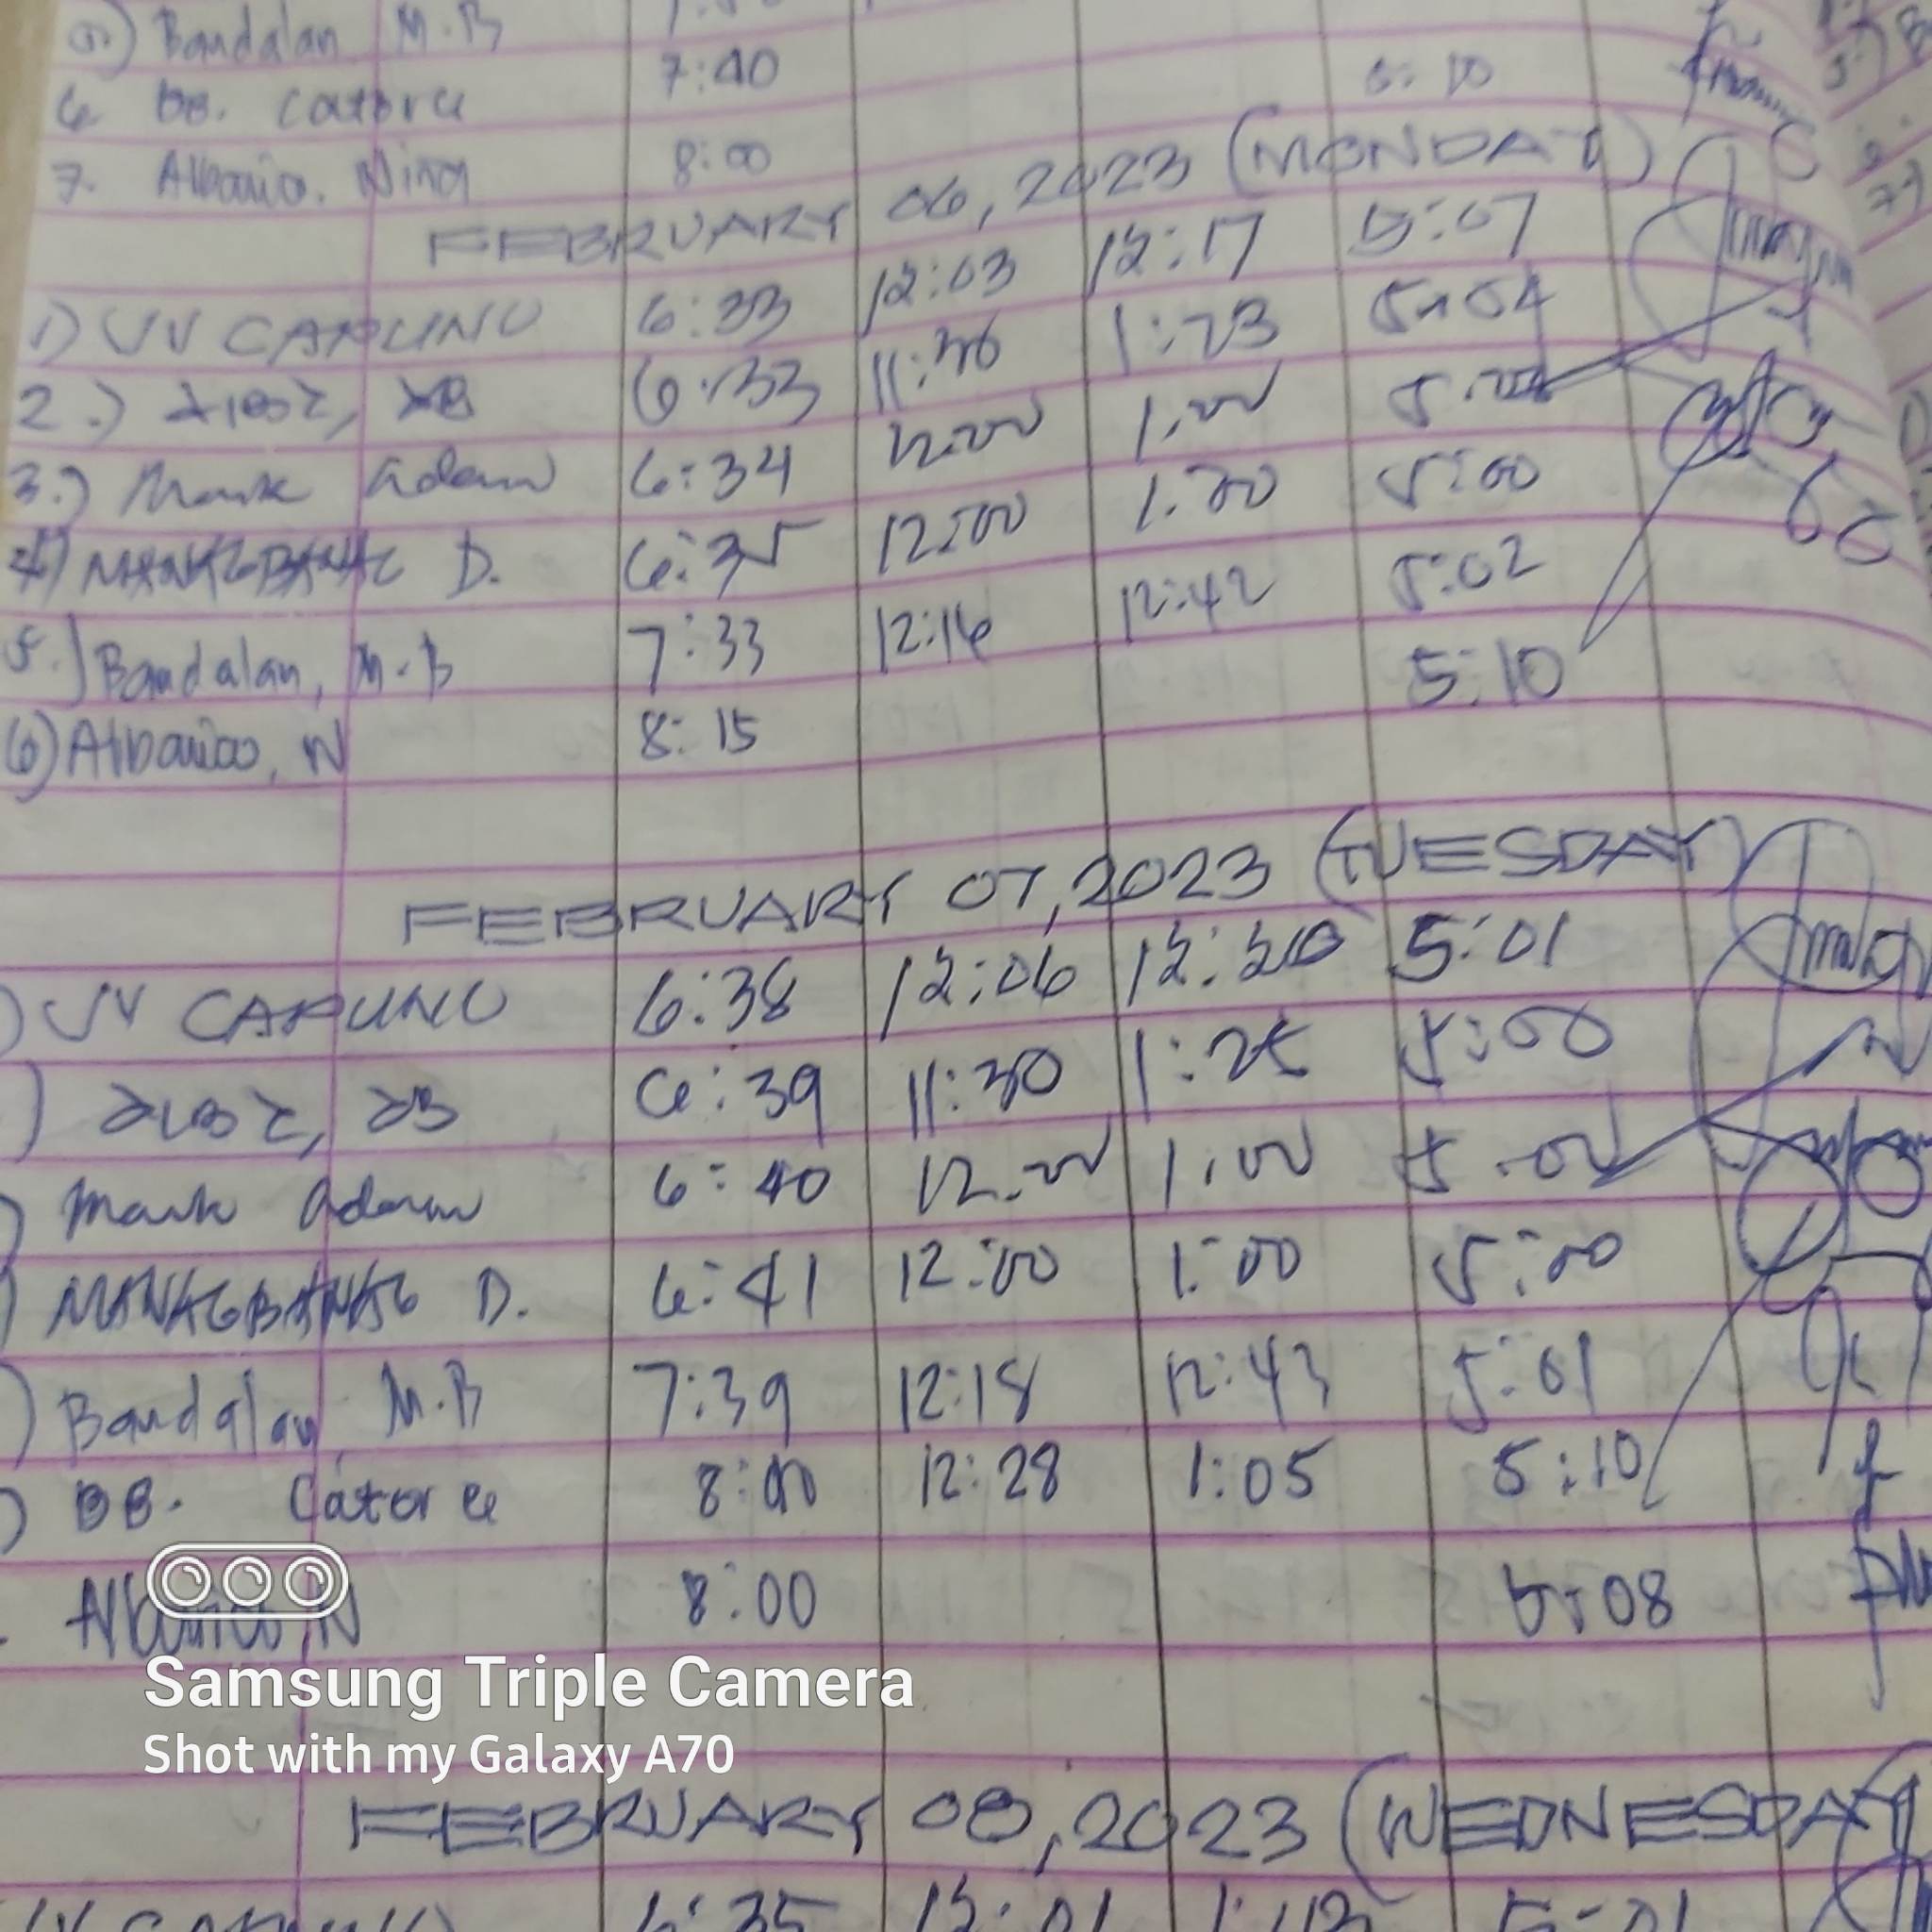 Bandalan M.B
6 BB. Catorce 7:40 5:10
7. Albanio. Nina 8:00
FEBRUARY 06, 2023 (MONDAY)
1) VV CAPUNO 6:33 12:03 12:17 5:07
2.) 6:33 11:36 1:23
3.) Mark Adam 6:34 12:00 1:00
4) MANAGBANAG D. 6:35 12:00 1:00 5:00
5.) Bandalan, M.B 7:33 12:16 12:42 5:02
6) Albanio, N 8:15 5:10
FEBRUARY 07, 2023 (TUESDAY)
) VV CAPUNO 6:38 12:06 12:20 5:01
) 6:39 11:30 1:25 5:00
) Mark Adam 6:40 12:00 1:00 5:00
) MANAGBANAG D. 6:41 12:00 1:00 5:00
) Bandalan M.B 7:39 12:18 12:43 5:01
) BB. Catorce 8:00 12:28 1:05 5:10
8:00 5:08
Samsung Triple Camera
Shot with my Galaxy A70
FEBRUARY 08, 2023 (WEDNESDAY)
6:35 12:01 1:13 5:01